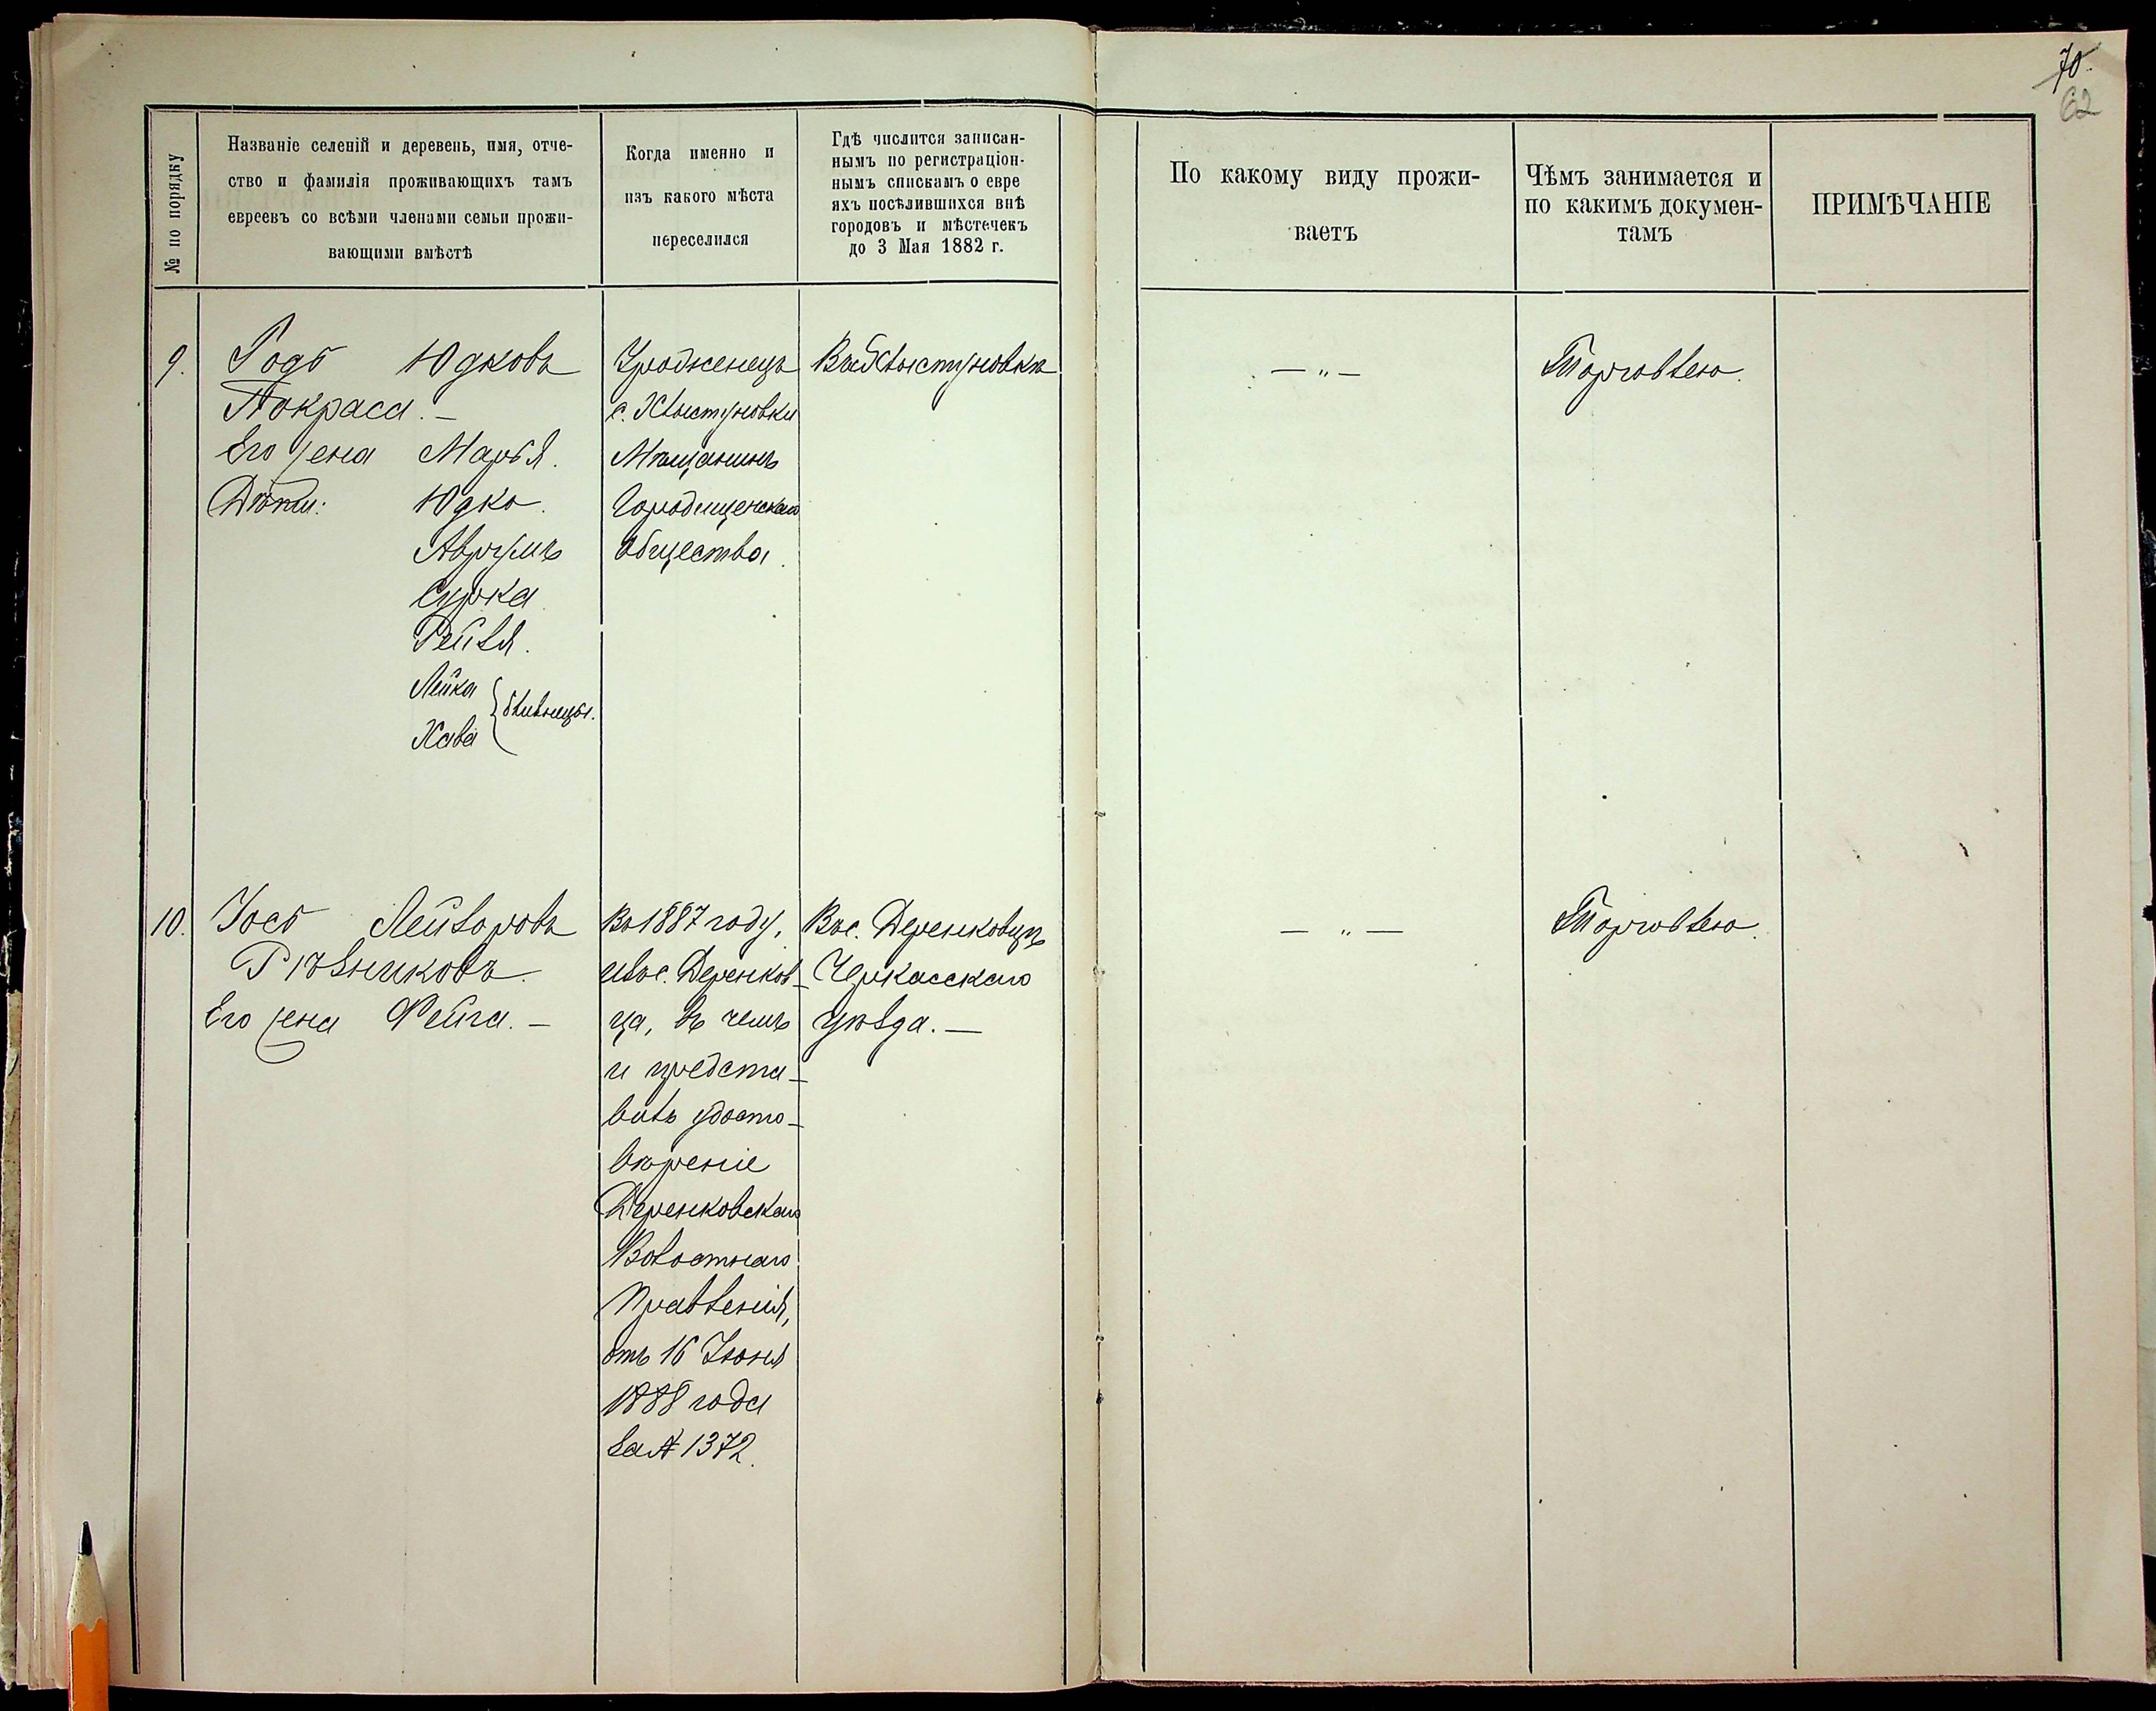 70.
62
№ по порядку
Названіе селеній и деревень, имя, отче-
ство и фамилія проживающихъ тамъ
евреевъ со всѣми членами семьи прожи-
вающими вмѣстѣ
Когда именно и
изъ какого мѣста
переселился
Гдѣ числится записан-
нымъ по регистраціон-
нымъ спискамъ о евре
яхъ посѣлившихся внѣ
городовъ и мѣстечекъ
до 3 Мая 1882 г.
По какому виду прожи-
ваетъ
Чѣмъ занимается и
по какимъ докумен-
тамъ
ПРИМѢЧАНІЕ
9.
Юдковъ
Покраса. —
Его жена Марья.
Дѣти: Юдко.
Аврумъ
Сурка
Рейзя.
Лейка
Хава
} близнецы.
Уроженецъ
с. Хлыстуновки
Мѣщанинъ
Городищенскаго
общества.
Въ с. Хлыстуновкѣ
— „ —
Торговлею.
10.
Іось Лейзоровъ
Рѣзниковъ.
Его жена Фейга. —
Въ 1887 году,
изъ с. Деренков-
ца, въ чемъ
и предста-
вилъ удосто-
вѣреніе
Деренковскаго
Волостнаго
Правленія,
отъ 16 Іюня
1888 года
за № 1372.
Въ с. Деренковцѣ
Черкасскаго
уѣзда. —
— „ —
Торговлею.